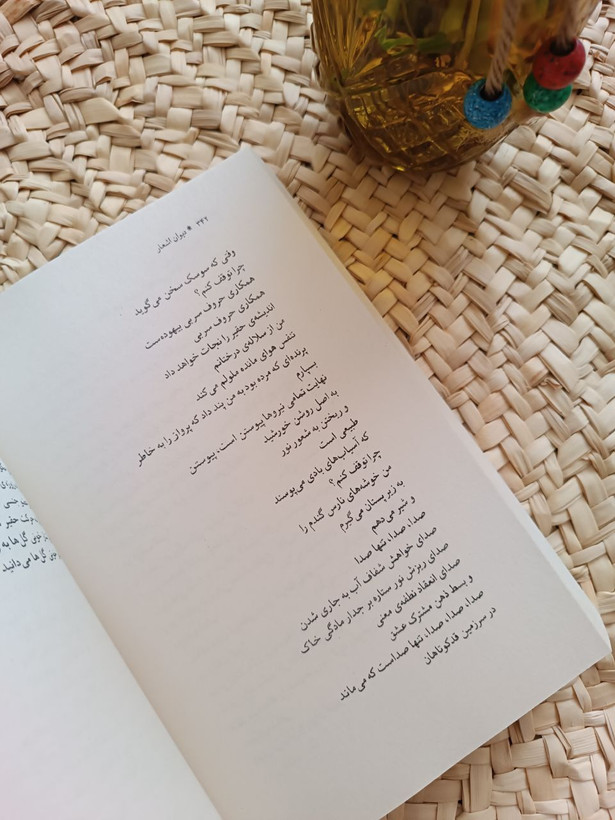 ۳۴۲ * دیوان اشعار
وقتی که سوسک سخن می‌گوید
چرا توقف کنم؟
همکاری حروف سربی بیهوده‌ست
همکاری حروف سربی
اندیشه‌ی حقیر را نجات خواهد داد
من از سلاله‌ی درختانم
تنفس هوای مانده ملولم می کند
پرنده‌ای که مرده بود به من پند داد که پرواز را به خاطر
بسپارم
نهایت تمامی نیروها پیوستن است، پیوستن
به اصل روشن خورشید
و ریختن به شعور نور
طبیعی است
که آسیاب‌های بادی می‌پوسند
چرا توقف کنم؟
من خوشه‌های نارس گندم را
به زیر پستان می گیرم
و شیر می‌دهم
صدا، صدا، تنها صدا
صدای خواهش شفاف آب به جاری شدن
صدای ریزش نور ستاره بر جدار مادگی خاک
صدای انعقاد نطفه‌ی معنی
و بسط ذهن مشترک عشق
صدا، صدا، صدا، تنها صداست که می‌ماند
در سرزمین قدکوتاهان